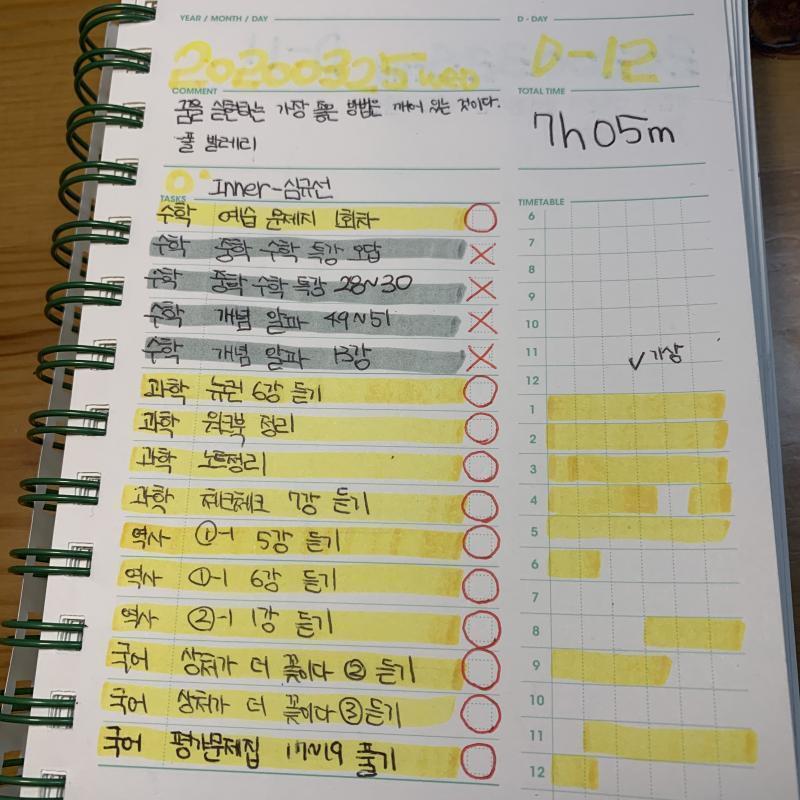 YEAR / MONTH / DAY
D - DAY
20200325 wed
D-12
COMMENT
TOTAL TIME
꿈을 실현하는 가장 좋은 방법은 깨어 있는 것이다.
폴 발레리
7h 05m
Inner-심규선
TASKS
TIMETABLE
수학 연습 문제지 1회차
수학 중학 수학 특강 오답
수학 중학 수학 특강 28~30
수학 개념 알파 49~51
수학 개념 알파 13강
과학 뉴런 6강 듣기
과학 워크북 정리
과학 노트정리
과학 체크체크 7강 듣기
역사 ①-1 5강 듣기
역사 ①-1 6강 듣기
역사 ②-1 1강 듣기
국어 상처가 더 꽃이다 ② 듣기
국어 상처가 더 꽃이다 ③ 듣기
국어 평가문제집 17~19 풀기
6
7
8
9
10
11 ✓기상
12
1
2
3
4
5
6
7
8
9
10
11
12